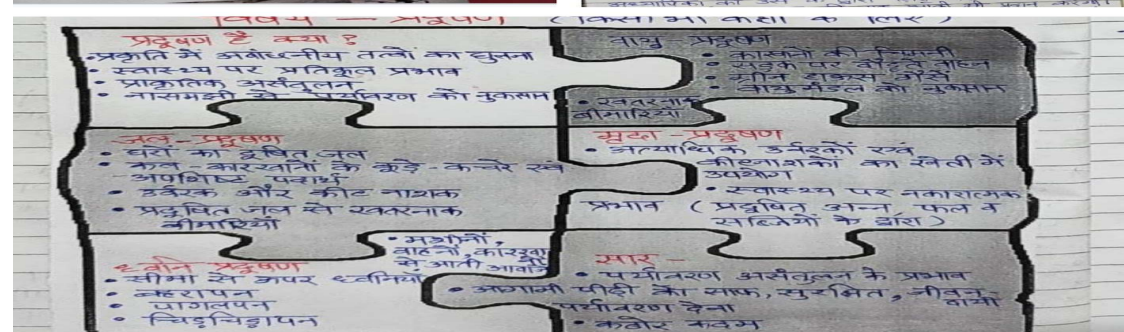 विषय — प्रदूषण (किसी भी कक्षा के लिए)
प्रदूषण है क्या ?
• प्रकृति में अवांछनीय तत्वों का घुलना
• स्वास्थ्य पर प्रतिकूल प्रभाव
• प्राकृतिक असंतुलन
• नासमझी से पर्यावरण को नुकसान
वायु प्रदूषण
• कारखानों की चिमनी
• सड़क पर दौड़ते वाहन
• ग्रीन हाउस गैसें
• वायुमंडल को नुकसान
• खतरनाक
बीमारियाँ
जल-प्रदूषण
• घरों का दूषित जल
• कल-कारखानों के कूड़े-कचरे एवं
अपशिष्ट पदार्थ
• उर्वरक और कीटनाशक
• प्रदूषित जल से खतरनाक
बीमारियाँ
मृदा-प्रदूषण
• अत्याधिक उर्वरकों एवं
कीटनाशकों का खेती में
उपयोग
• स्वास्थ्य पर नकारात्मक
प्रभाव (प्रदूषित अन्न, फल व
सब्जियों के द्वारा)
ध्वनि प्रदूषण
• मशीनों,
वाहनों,
से आती आवाज
• सीमा से ऊपर ध्वनियाँ
• बहरापन
• पागलपन
• चिड़चिड़ापन
सार -
• पर्यावरण असंतुलन के प्रभाव
• आगामी पीढ़ी को साफ, सुरक्षित, जीवन
दायी
पर्यावरण देना
• कठोर कदम